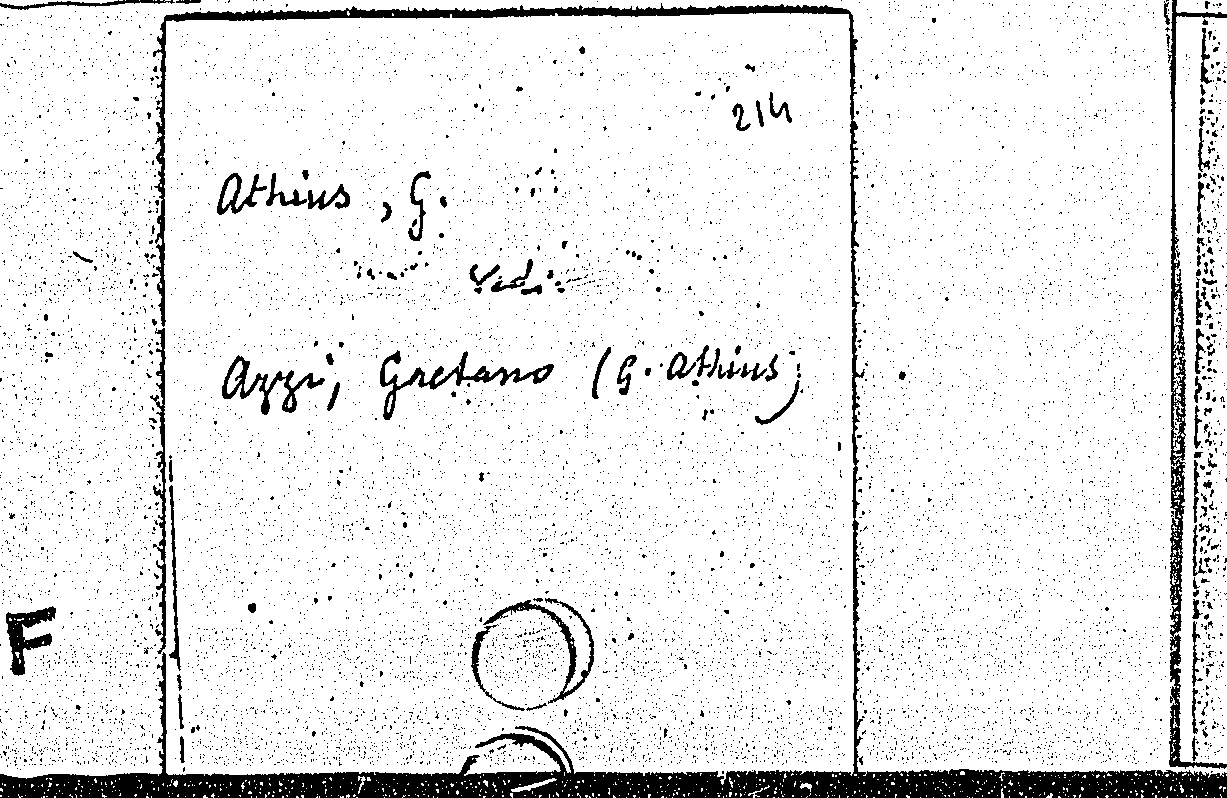 214
Athius, G.
Vedi:
Azzi, Gaetano (G. Athius)
F